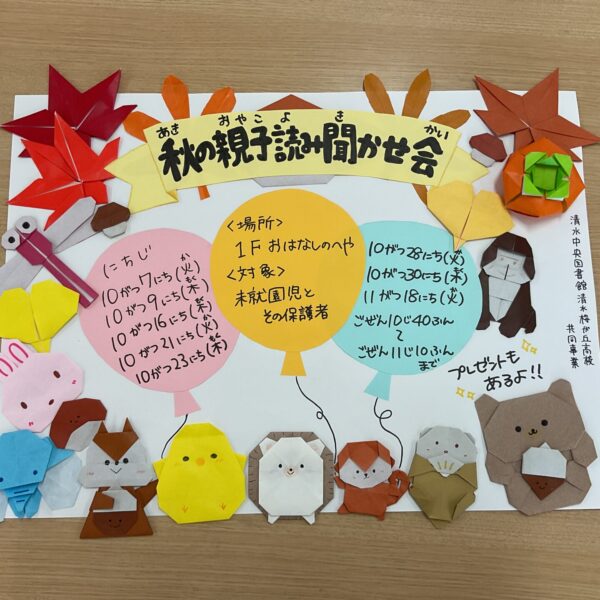 あき おやこ よ き かい
秋の親子読み聞かせ会
にちじ
10がつ7にち(火)
10がつ9にち(木)
10がつ16にち(木)
10がつ21にち(火)
10がつ23にち(木)
<場所>
1F おはなしのへや
<対象>
未就園児と
その保護者
10がつ28にち(火)
10がつ30にち(木)
11がつ18にち(火)
ごぜん10じ40ふん
〜
ごぜん11じ10ふん
まで
プレゼントも
あるよ!!
清水中央図書館 清水桜が丘高校
共同事業